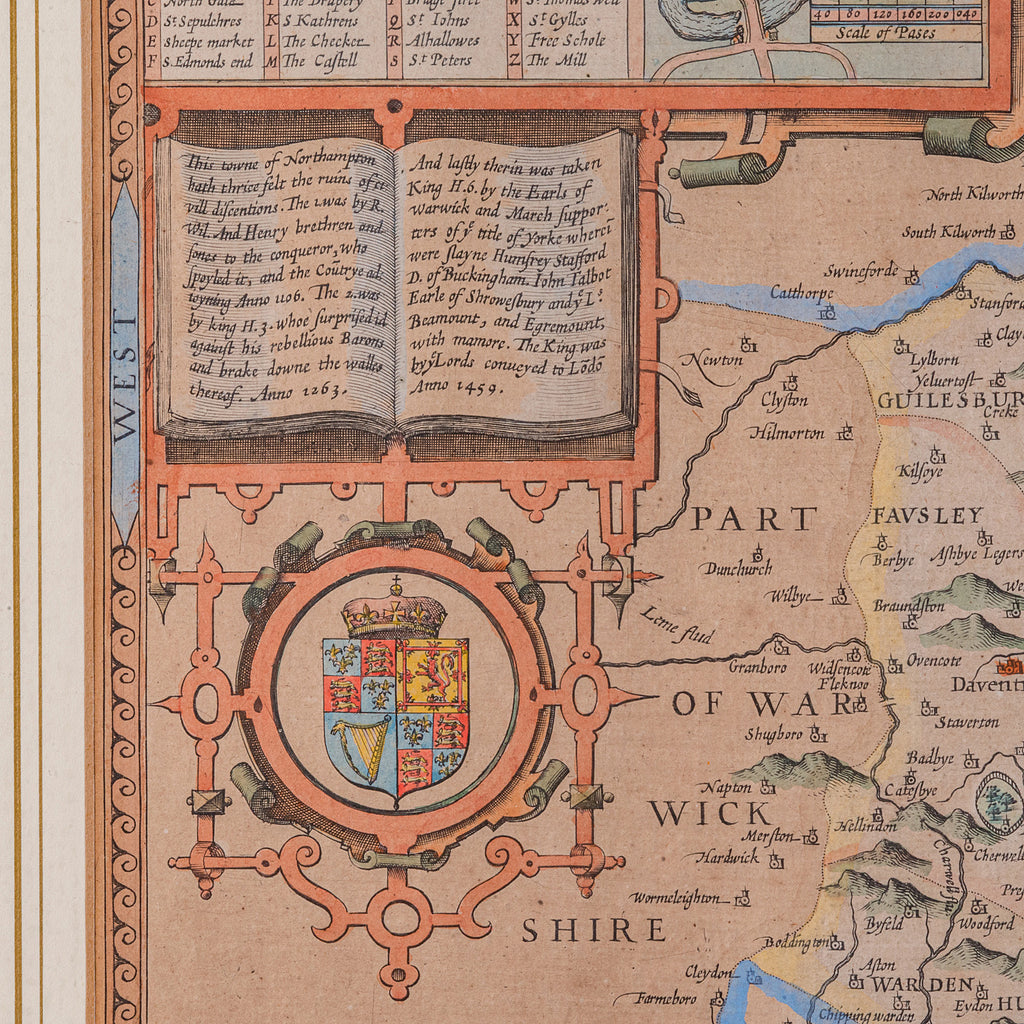 D St Sepulchres K S Kathrens Q St Iohns X St Gylles
E Sheepe market L The Checker R Alhallowes Y Free Schole
F S. Edmonds end M The Castell S St Peters Z The Mill
40 80 120 160 200 240
Scale of Pases
This towne of Northampton
hath thrice felt the ruins of ci-
vill discentions. The 1. was by R.
Wil. And Henry brethren and
sones to the conqueror, who
spoyled it, and the Coũtrye ad
ioyning Anno 1106. The 2. was
by king H.3. whoe surprised it
against his rebellious Barons
and brake downe the walles
thereof. Anno 1263.
And lastly therin was taken
King H.6. by the Earls of
Warwick and March suppor-
ters of yᵉ title of Yorke wherei̅
were slayne Humfrey Stafford
D. of Buckingham. Iohn Talbot
Earle of Shrowesbury and yᵉ Lˢ.
Beamount, and Egremount,
with mamore. The King was
by yᵉ Lords conveyed to Lõdõ
Anno 1459.
WEST
North Kilworth
South Kilworth
Swineforde
Catthorpe
Stanford
Newton
Lylborn
Clay
Yelvertoft
Clyfton
GUILESBUR
Creke
Hilmorton
Kilsbye
PART
FAVSLEY
Berbye
Ashbye Legers
Dunchurch
Wilbye
Braundston
We
Leme flud
Granboro
Widsencote
Flcknoo
Ovencote
Davent
OF WAR
Staverton
Shugboro
Badbye
Napton
Catesbye
WICK
Hellindon
Merston
Hardwick
Charwell flu
Cherwell
Wormeleighton
Pre
Byfeld
Woodford
SHIRE
Boddington
Cleydon
Aston
WARDEN
Farmeboro
Eydon
HU
Chipping warden